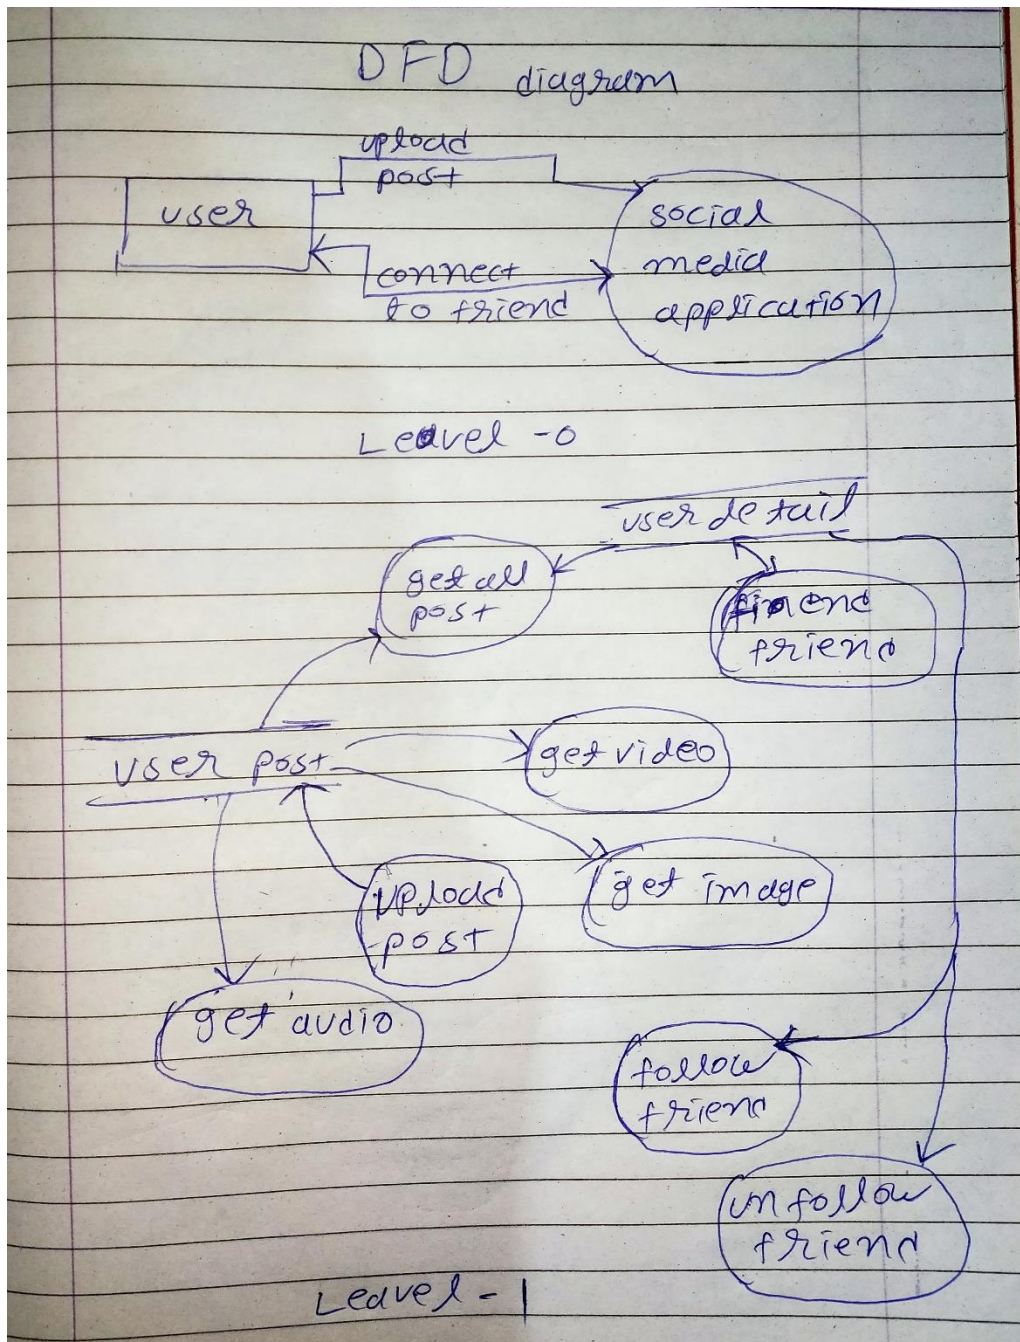 DFD diagram
upload
post
user
social
media
application
connect
to friend
Leavel - 0
user detail
get all
post
friend
user post
get video
upload
post
get image
get audio
follow
friend
un follow
friend
Leavel - 1